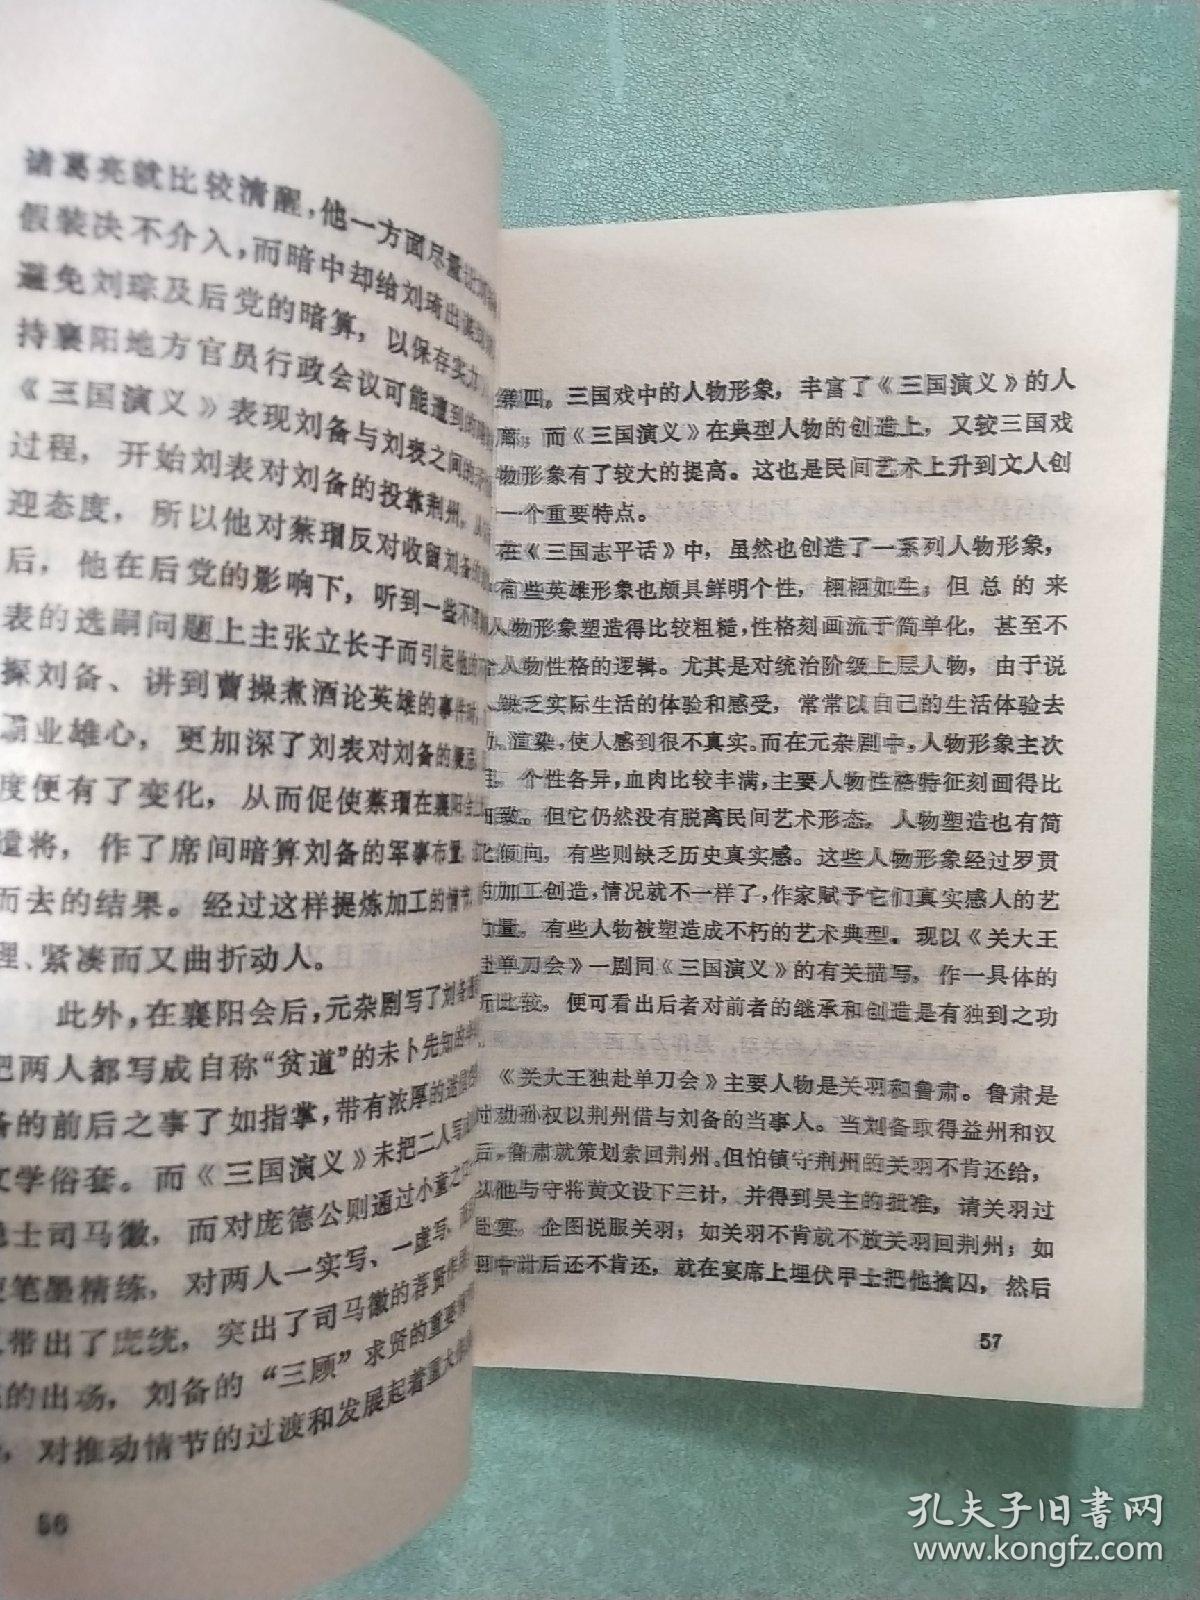 诸葛亮就比较清醒，他一方面尽量
假装决不介入，而暗中却给刘琦出谋
避免刘琮及后党的暗算，以保存实力
持襄阳地方官员行政会议可能遭到的
《三国演义》表现刘备与刘表之间的
过程，开始刘表对刘备的投靠荆州，
迎态度，所以他对蔡瑁反对收留刘备
后，他在后党的影响下，听到一些不
表的选嗣问题上主张立长子而引起他
探刘备、讲到曹操煮酒论英雄的事件
霸业雄心，更加深了刘表对刘备的
度便有了变化，从而促使蔡瑁在襄阳会
遣将，作了席间暗算刘备的军事布置，
而去的结果。经过这样提炼加工的情节，
理、紧凑而又曲折动人。
此外，在襄阳会后，元杂剧写了刘备
把两人都写成自称“贫道”的未卜先知的
备的前后之事了如指掌，带有浓厚的
文学俗套。而《三国演义》未把二人写
隐士司马徽，而对庞德公则通过小童之
笔墨精练，对两人一实写、一虚写，
带出了庞统，突出了司马徽的荐贤作用
的出场，刘备的“三顾”求贤的重要
，对推动情节的过渡和发展起着重大
56
第四。三国戏中的人物形象，丰富了《三国演义》的人
而《三国演义》在典型人物的创造上，又较三国戏
物形象有了较大的提高。这也是民间艺术上升到文人创
一个重要特点。
在《三国志平话》中，虽然也创造了一系列人物形象，
有些英雄形象也颇具鲜明个性，栩栩如生；但总的来
人物形象塑造得比较粗糙，性格刻画流于简单化，甚至不
人物性格的逻辑。尤其是对统治阶级上层人物，由于说
缺乏实际生活的体验和感受，常常以自己的生活体验去
渲染，使人感到很不真实。而在元杂剧中，人物形象主次
个性各异，血肉比较丰满，主要人物性格特征刻画得比
致。但它仍然没有脱离民间艺术形态，人物塑造也有简
化倾向，有些则缺乏历史真实感。这些人物形象经过罗贯
的加工创造，情况就不一样了，作家赋予它们真实感人的艺
力量。有些人物被塑造成不朽的艺术典型。现以《关大王
赴单刀会》一剧同《三国演义》的有关描写，作一具体的
比较，便可看出后者对前者的继承和创造是有独到之功
《关大王独赴单刀会》主要人物是关羽和鲁肃。鲁肃是
动孙权以荆州借与刘备的当事人。当刘备取得益州和汉
后，鲁肃就策划索回荆州。但怕镇守荆州的关羽不肯还给，
以他与守将黄文设下三计，并得到吴主的批准，请关羽过
赴宴。企图说服关羽；如关羽不肯就不放关羽回荆州；如
中计后还不肯还，就在宴席上埋伏甲士把他擒囚，然后
57
孔夫子旧书网
www.kongfz.com